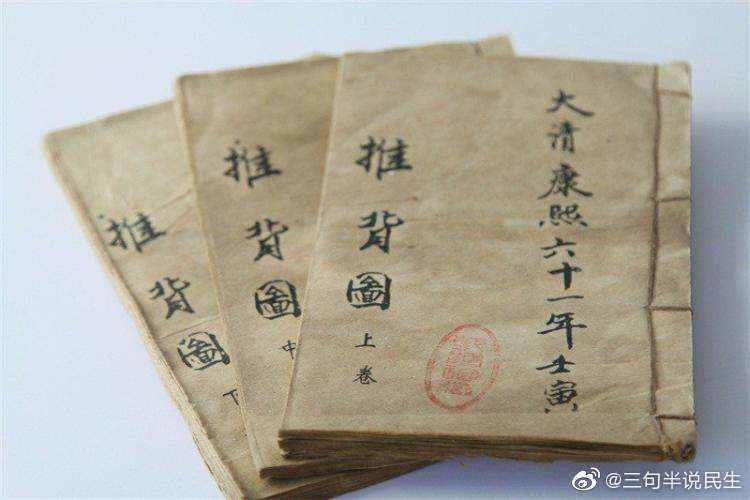 大清康熙六十一年壬寅
推背圖
上卷
推背圖
中
推背圖
下
@三句半说民生